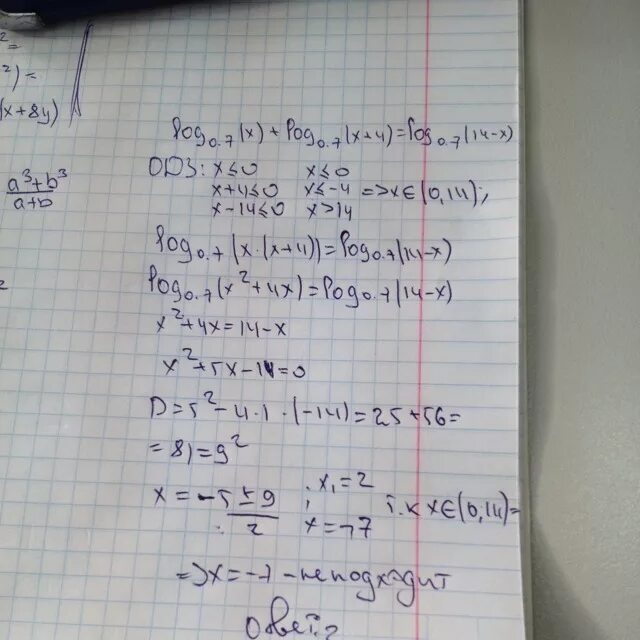 2 =
2) =
(x+8y)
a³+b³
a+b
2
log₀.₇(x)+log₀.₇(x+4)=log₀.₇(14-x)
ОДЗ: x≤0 x≤0
x+4≤0 x≤-4 => x∈(0,14);
x-14≤0 x>14
log₀.₇(x·(x+4))=log₀.₇(14-x)
log₀.₇(x²+4x)=log₀.₇(14-x)
x²+4x=14-x
x²+5x-14=0
D=5²-4·1·(-14)=25+56=
=81=9²
x=-5±9 ; x₁=2 т.к x∈(0,14)=
2 x=-7
=>x=-7-не подходит
Ответ: 2